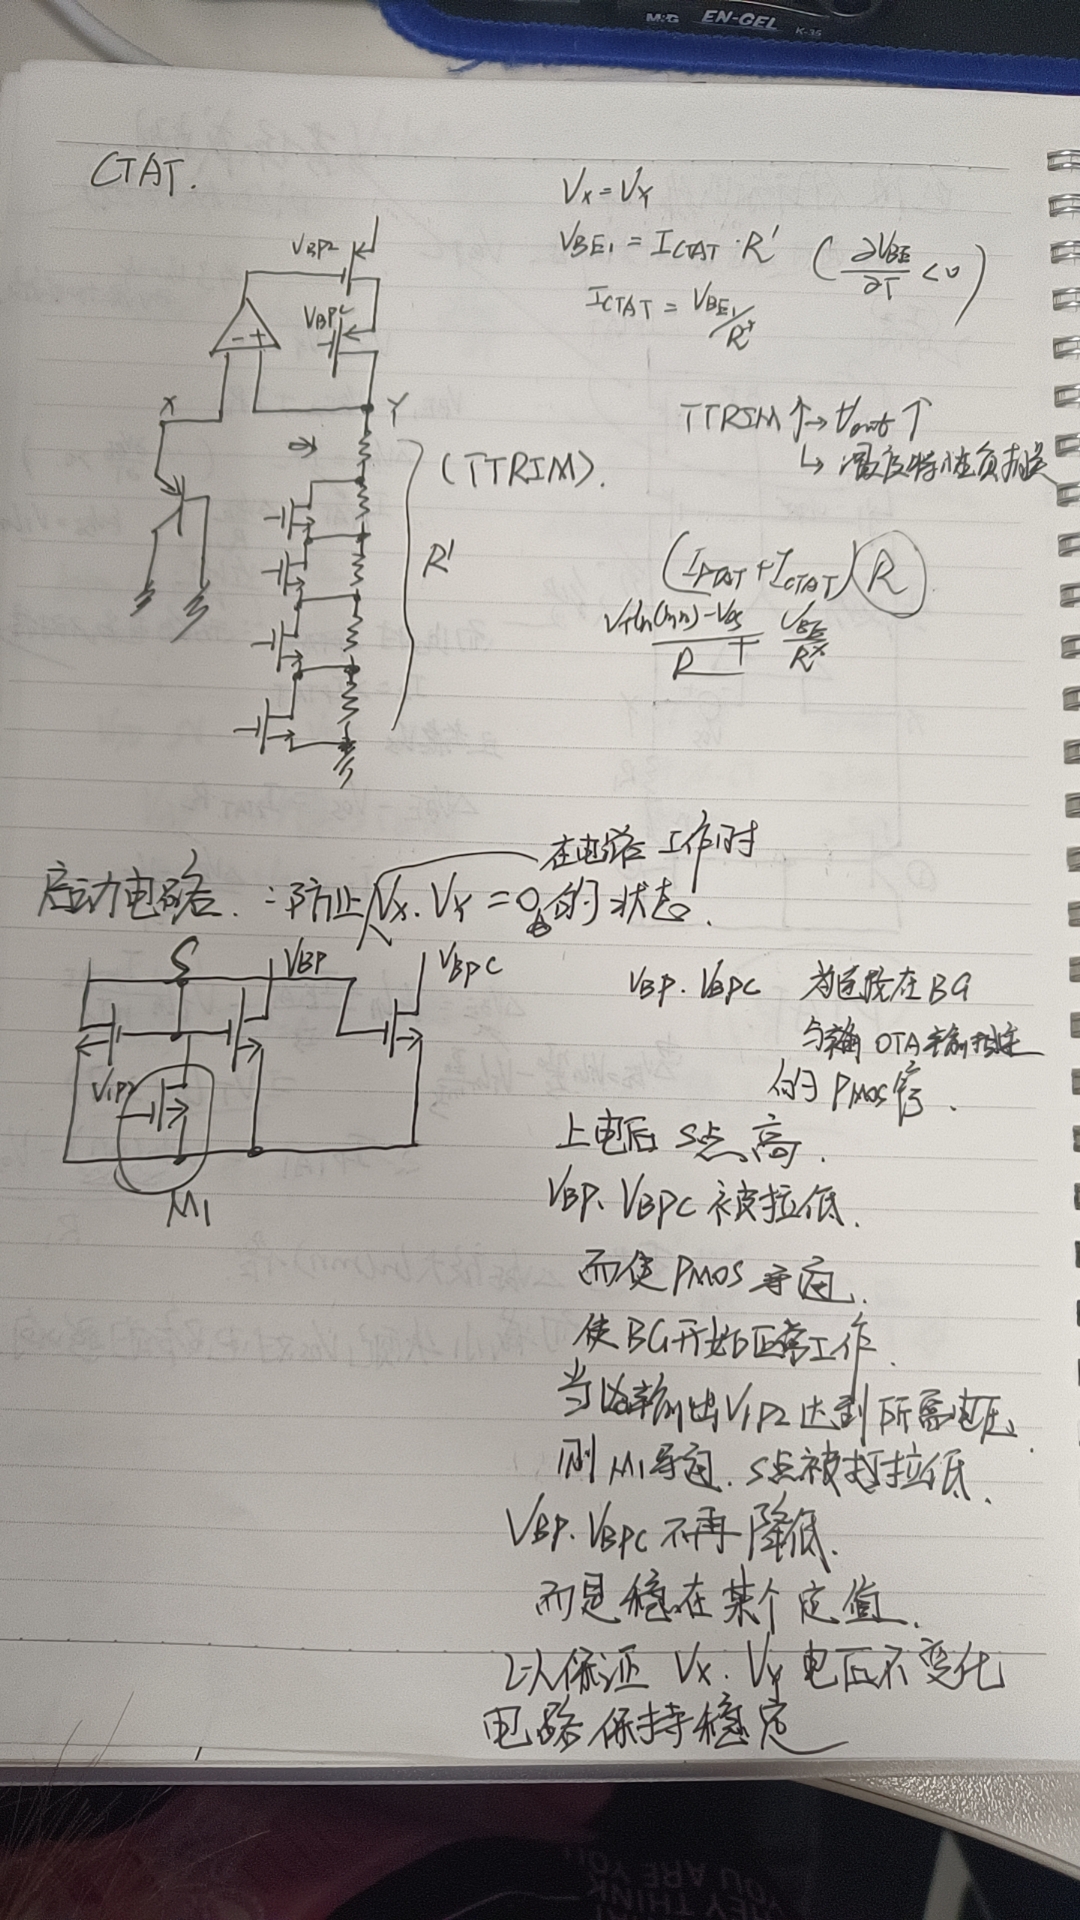 M&G EN-GEL K-35
CTAT.
Vx = VY
VBE1 = ICTAT · R' (∂VBE/∂T < 0)
ICTAT = VBE1/R*
VBP2
VBPC
- +
X
Y
TTRIM ↑ → Vout ↑
↳ 温度特性负
(TTRIM).
R'
(IPTAT + ICTAT) R
VTln(mn) - VOS / R + VBE / R*
在电路工作时
启动电路. : 防止 Vx. VY = 0 的状态.
S
VBP
VBPC
VIP2
M1
VBP. VBPC 为连接在BG
与 OTA 输
的 PMOS 管.
上电后 S点高.
VBP. VBPC 被拉低.
而使 PMOS 导通.
使BG开始正常工作.
当 输出VIP2 达到所需电压.
则 M1导通. S点被拉低.
VBP. VBPC 不再降低.
而是稳在某个定值.
以保证 Vx. VY 电压不变化
电路保持稳定